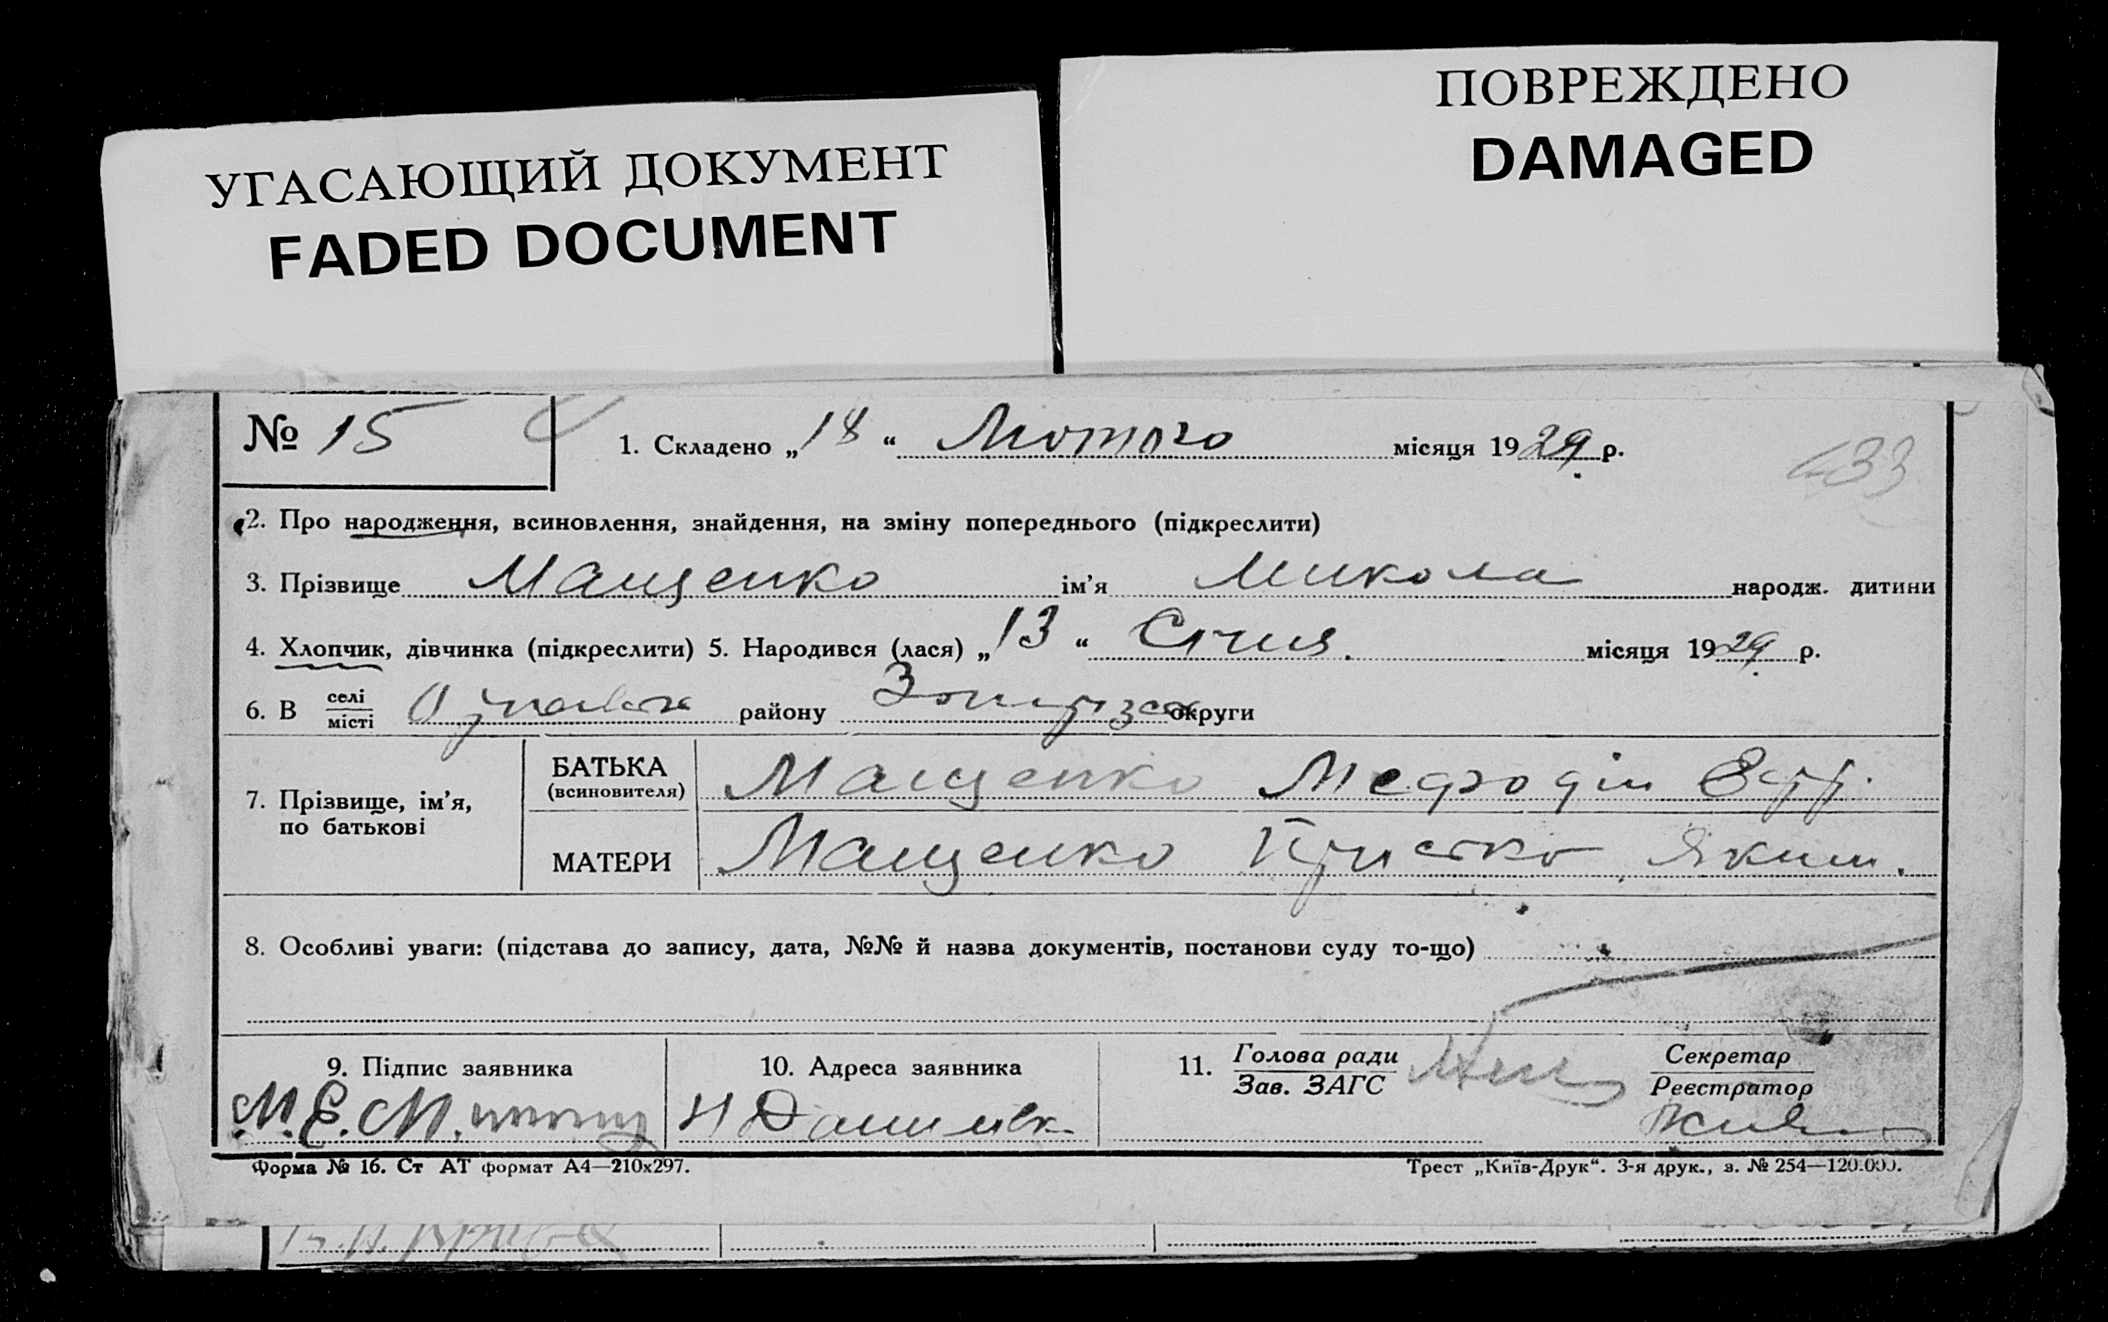 УГАСАЮЩИЙ ДОКУМЕНТ
FADED DOCUMENT
ПОВРЕЖДЕНО
DAMAGED
№ 15
1. Складено „18“ Лютого місяця 1929 р.
433
2. Про народження, всиновлення, знайдення, на зміну попереднього (підкреслити)
3. Прізвище Мащенко ім’я Микола народж. дитини
4. Хлопчик, дівчинка (підкреслити) 5. Народився (лася) „13“ Січня місяця 1929 р.
6. В селі місті району округи
7. Прізвище, ім’я, по батькові
БАТЬКА (всиновителя) Мащенко Мефодій
МАТЕРИ Мащенко Яким.
8. Особливі уваги: (підстава до запису, дата, №№ й назва документів, постанови суду то-що)
9. Підпис заявника
М. Е. М.
10. Адреса заявника
11. Голова ради
Зав. ЗАГС
Секретар
Реєстратор
Форма № 16. Ст АТ формат А4—210х297.
Трест „Київ-Друк“. 3-я друк., з. № 254—120.000.